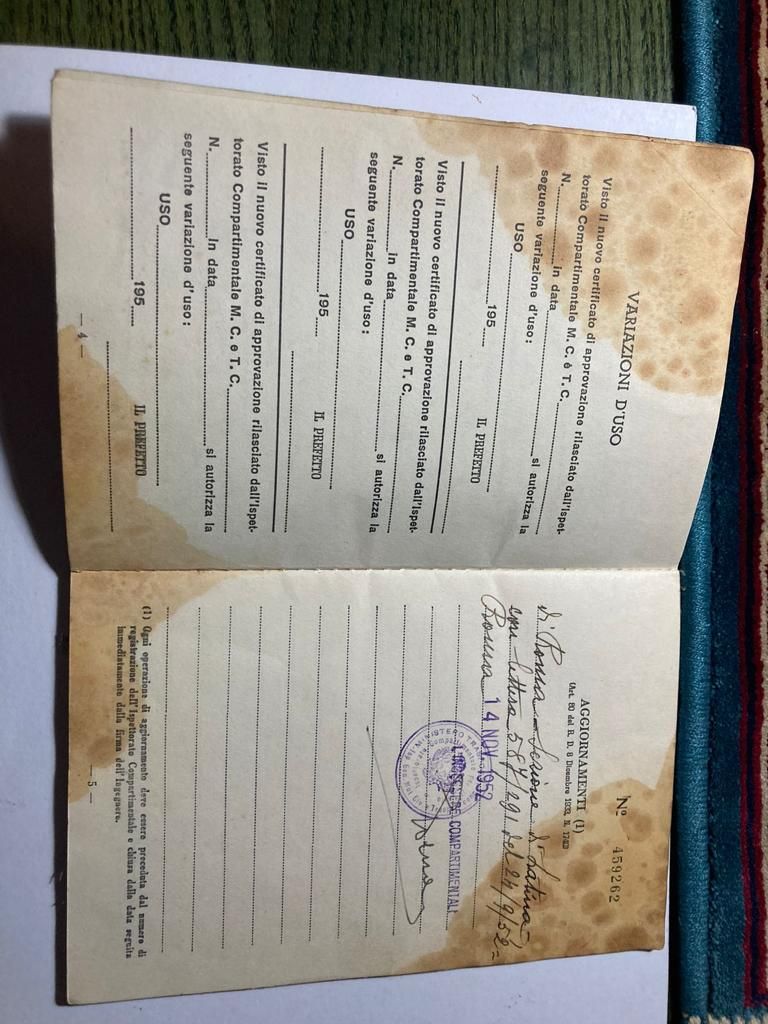 VARIAZIONI D'USO
Visto il nuovo certificato di approvazione rilasciato dall'Ispet-
torato Compartimentale M. C. è T. C.
N. in data si autorizza la
seguente variazione d'uso:
USO
195
IL PREFETTO
Visto il nuovo certificato di approvazione rilasciato dall'Ispet-
torato Compartimentale M. C. e T. C.
N. in data si autorizza la
seguente variazione d'uso:
USO
195
IL PREFETTO
Visto il nuovo certificato di approvazione rilasciato dall'Ispet-
torato Compartimentale M. C. e T. C.
N. in data si autorizza la
seguente variazione d'uso:
USO
195
IL PREFETTO
— 4 —
Nº 459262
AGGIORNAMENTI (1)
(Art. 80 del R. D. 8 Dicembre 1933, N. 1740)
di Roma - Sezione di Latina -
con lettera 587/291 del 24/9/52 =
Roma 14 NOV 1952
COMPARTIMENTALE
MINISTERO
(1) Ogni operazione di aggiornamento deve essere preceduta dal numero di
registrazione dell'Ispettorato Compartimentale e chiusa dalla data seguita
immediatamente dalla firma dell'Ingegnere.
— 5 —